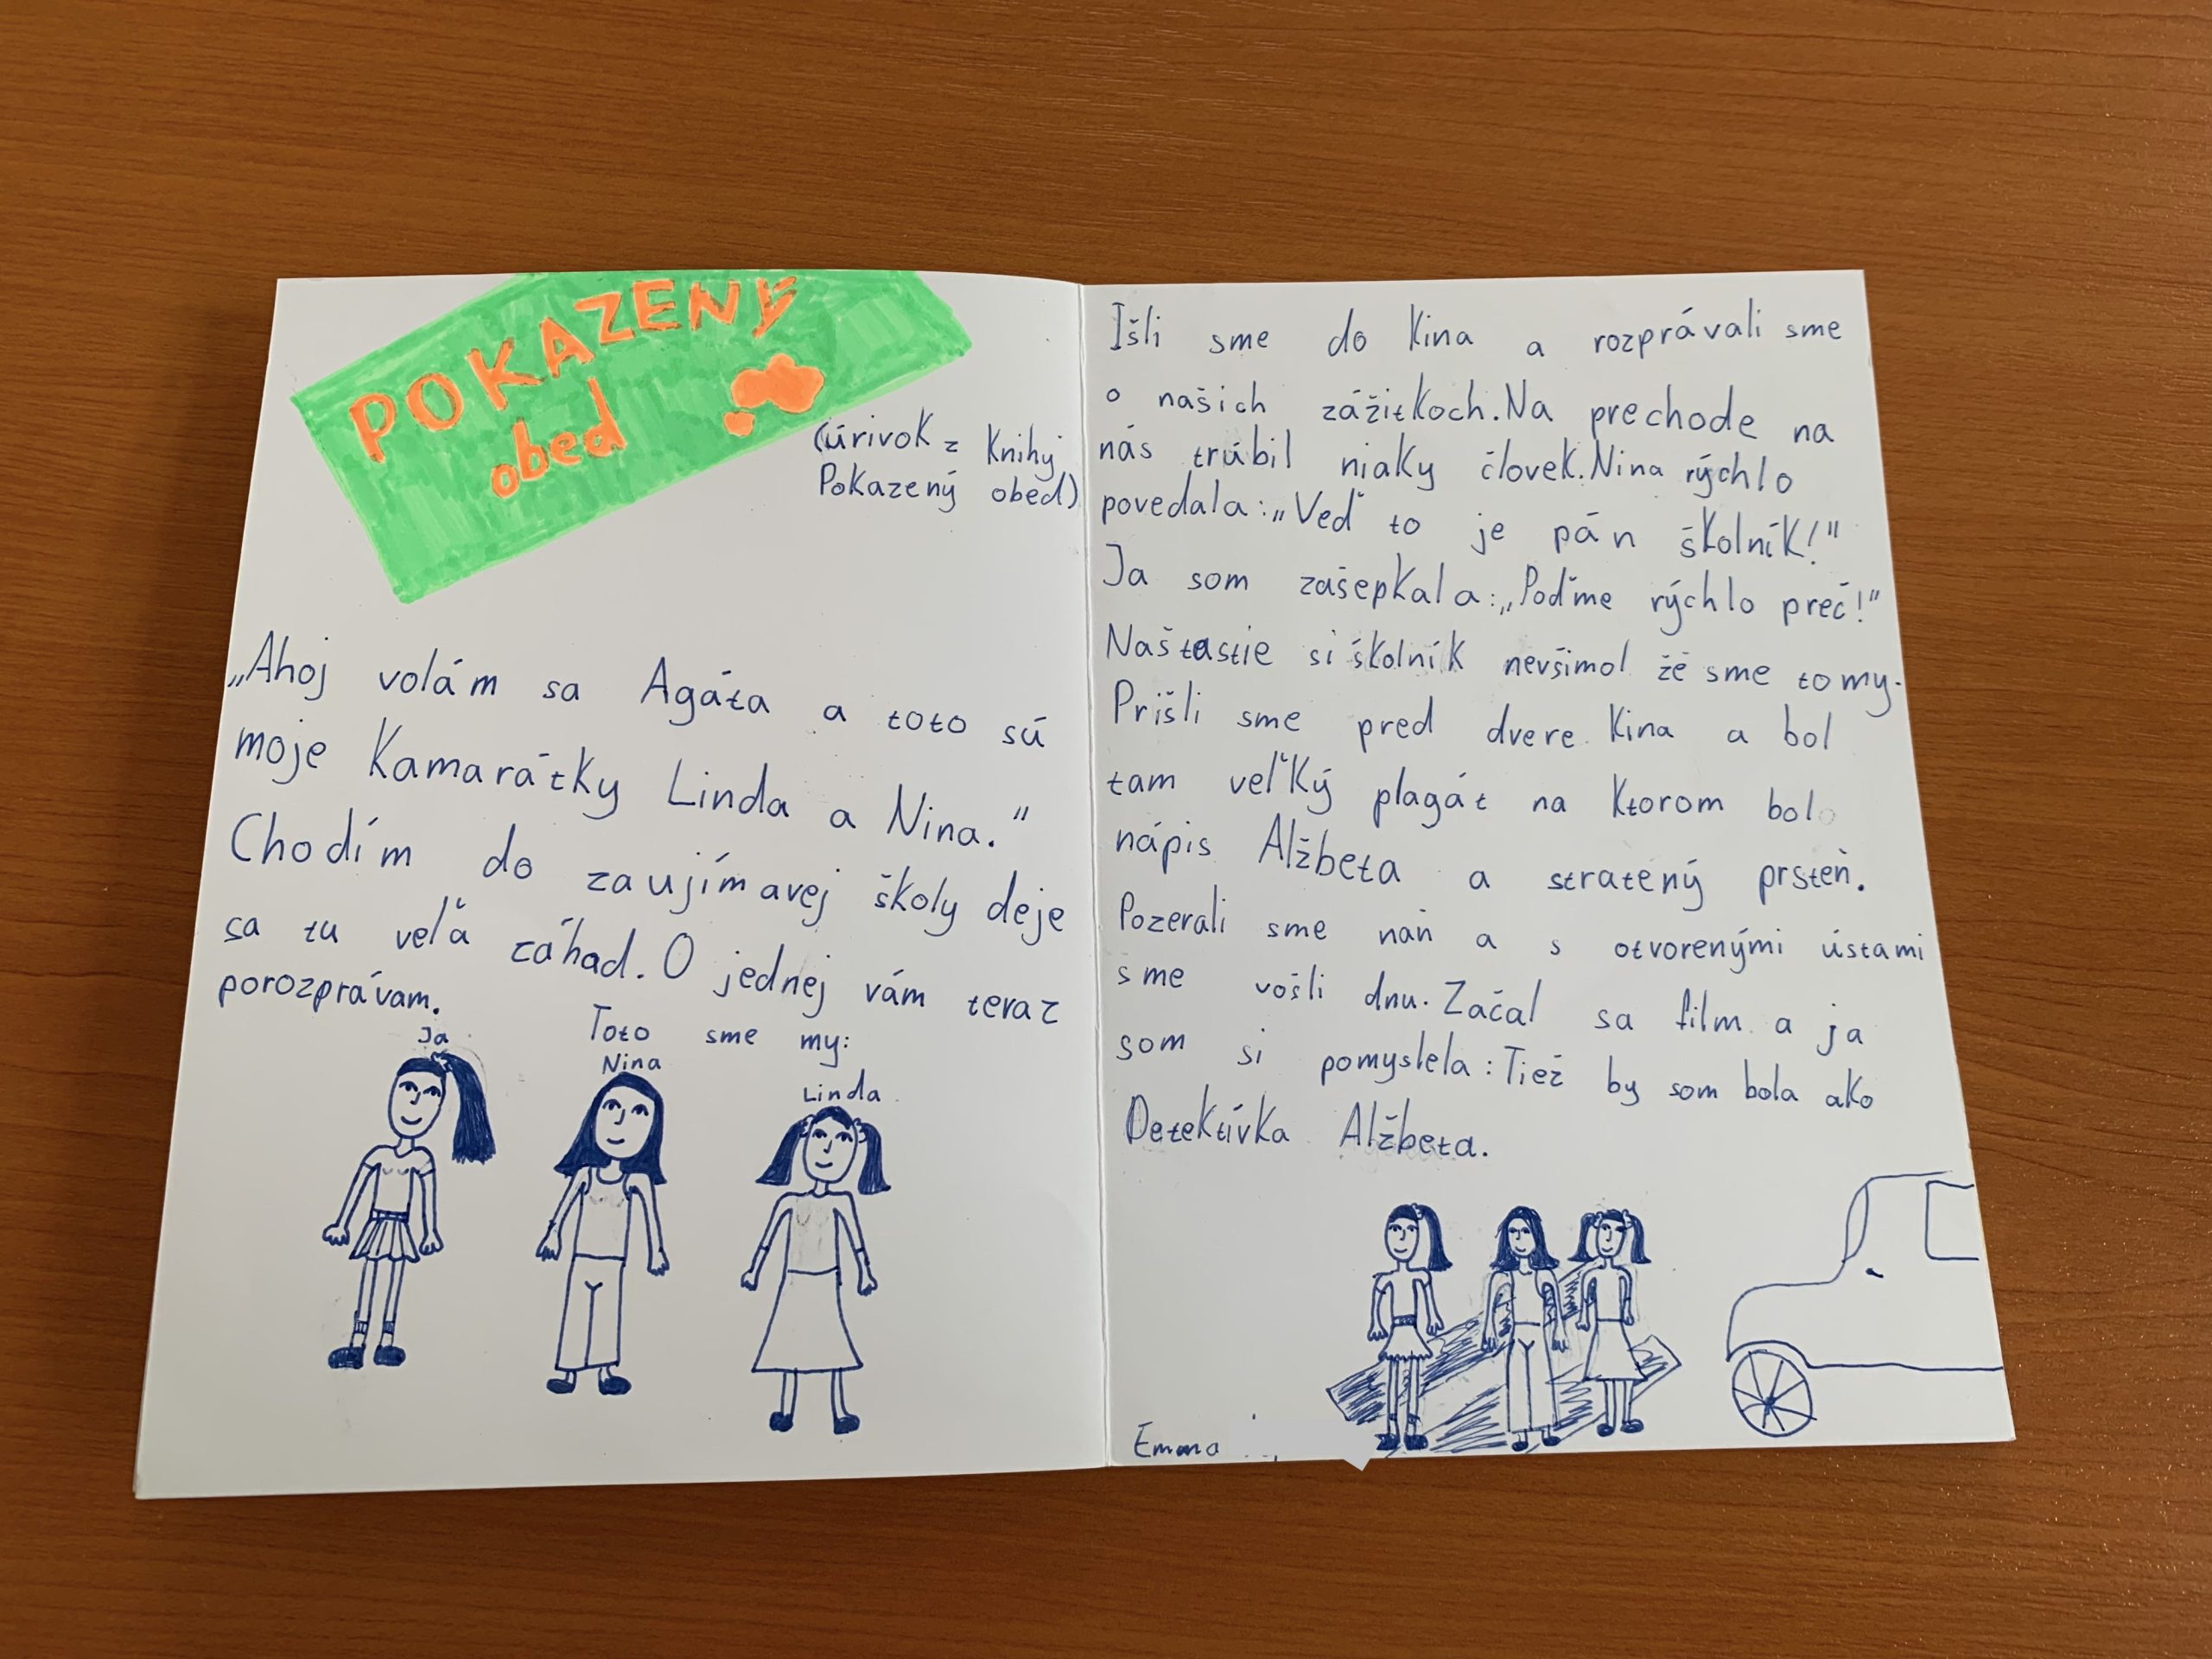 POKAZENÝ
obed
(úrivok z Knihy
Pokazený obed)
„Ahoj volám sa Agáta a toto sú
moje Kamarátky Linda a Nina."
Chodím do zaujímavej školy deje
sa tu veľa záhad. O jednej vám teraz
porozprávam.
Toto sme my:
Ja
Nina
Linda
Išli sme do Kina a rozprávali sme
o našich zážitkoch. Na prechode na
nás trúbil niaky človek. Nina rýchlo
povedala: „Veď to je pán školník!"
Ja som zašepkala: „Poďme rýchlo preč!"
Naštastie si školník nevšimol že sme to my.
Prišli sme pred dvere Kina a bol
tam veľký plagát na Ktorom bolo
nápis Alžbeta a stratený prsteň.
Pozerali sme naň a s otvorenými ústami
sme vošli dnu. Začal sa film a ja
som si pomyslela: Tiež by som bola ako
Detektívka Alžbeta.
Emma